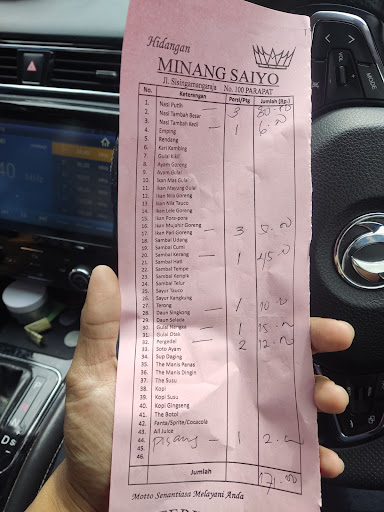 Hidangan
MINANG SAIYO
Jl. Sisingamangaraja No. 100 PARAPAT
No. Keterangan Porsi/Ptg Jumlah (Rp.)
1. Nasi Putih 3
2. Nasi Tambah Besar
3. Nasi Tambah Kecil — 1
4. Emping
5. Rendang
6. Kari Kambing
7. Gulai Kikil
8. Ayam Goreng
9. Ayam Gulai
10. Ikan Mas Gulai
11. Ikan Mayung Gulai
12. Ikan Nila Goreng
13. Ikan Nila Tauco
14. Ikan Lele Goreng
15. Ikan Pora-pora
16. Ikan Mujahir Goreng — 3
17. Ikan Pari Goreng
18. Sambal Udang
19. Sambal Cumi
20. Sambal Kerang — 1
21. Sambal Hati
22. Sambal Tempe
23. Sambal Keripik
24. Sambal Telur
25. Sayur Tauco
26. Sayur Kangkung
27. Terong — 1
28. Daun Singkong
29. Daun Selada
30. Gulai Nangka — 1
31. Gulai Otak
32. Pergedel — 2
33. Soto Ayam
34. Sup Daging
35. The Manis Panas
36. The Manis Dingin
37. The Susu
38. Kopi
39. Kopi Susu
40. Kopi Gingseng
41. The Botol
42. Fanta/Sprite/Cocacola
43. All Juice
44. Pisang — 1
45.
46.
Jumlah
Motto Senantiasa Melayani Anda
VOL
D S